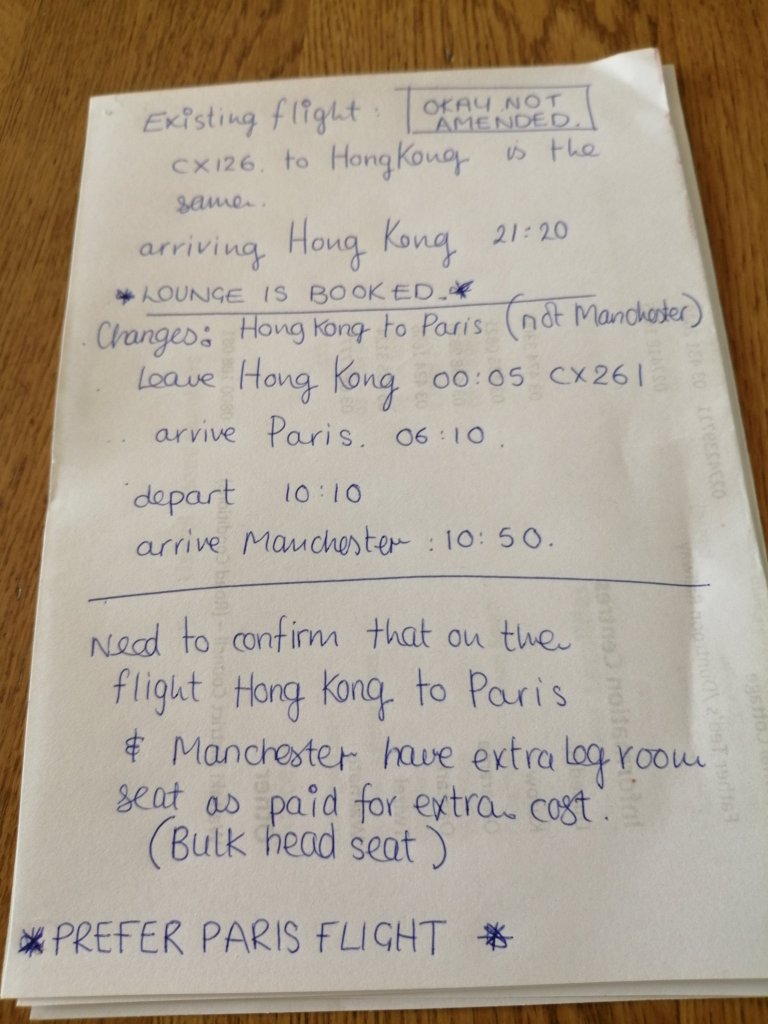 Existing flight: OKAY NOT
AMENDED.
CX126. to Hong Kong is the
same.
arriving Hong Kong 21:20
* LOUNGE IS BOOKED. *
Changes: Hong Kong to Paris (not Manchester)
Leave Hong Kong 00:05 CX261
arrive Paris. 06:10.
depart 10:10
arrive Manchester : 10:50.
Need to confirm that on the
flight Hong Kong to Paris
& Manchester have extra leg room
seat as paid for extra cost.
(Bulk head seat)
* PREFER PARIS FLIGHT *